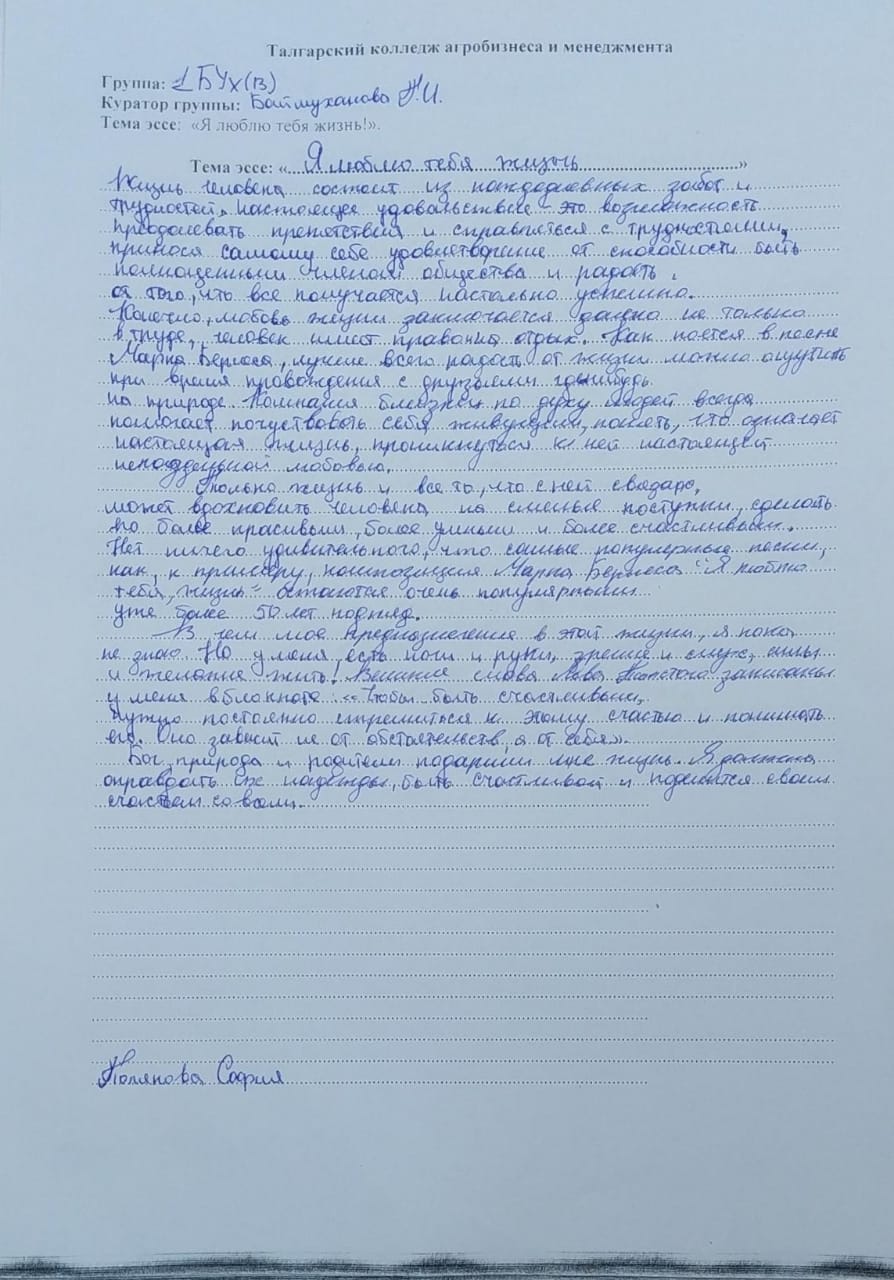 Талгарский колледж агробизнеса и менеджмента
Группа: 1БУх(в)
Куратор группы: Баймуханова Ж.И.
Тема эссе: «Я люблю тебя жизнь!».
Тема эссе: «Я люблю тебя жизнь»
Жизнь человека состоит из каждодневных забот и
трудностей. Настоящее удовольствие – это возможность
преодолевать препятствия и справляться с трудностями,
принося самому себе удовлетворение от способности быть
полноценными членом общества и радость
от того, что все получается настолько успешно.
Конечно, любовь жизни заключается далеко не только
в труде, человек имеет право на отдых. Как поется в песне
Марка Бернеса, лучше всего радость от жизни можно ощутить
при время провождения с друзьями где-нибудь
на природе. Компания близких по духу людей всегда
помогает почуствовать себя живущим, понять, что означает
настоящая жизнь, проникнуться к ней настоящей
неподдельной любовью.
Только жизнь и все то, что с ней связано,
может вдохновить человека на смелые поступки, сделать
его более красивым, более умным и более счастливым.
Нет ничего удивительного, что самые популярные песни,
как, к примеру, композиция Марка Бернеса "Я люблю
тебя, жизнь" остаются очень популярными
уже более 50 лет подряд.
В чем мое предназначение в этой жизни, я пока
не знаю. Но у меня есть ноги и руки, зрение и слух, силы
и желание жить. Великие слова Льва Толстого записаны
у меня в блокноте: «Чтобы быть счастливым,
нужно постоянно стремиться к этому счастью и понимать
его. Оно зависит не от обстоятельств, а от себя».
Бог, природа и родители подарили мне жизнь. Я должна
оправдать их надежды, быть счастливой и поделится своим
счастьем со всеми.
София